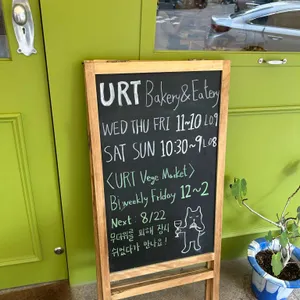 URT Bakery&Eatery
WED THU FRI 11~10 L09
SAT SUN 10:30~9 L08
<URT Vege Market>
Bi;weekly Friday 12~2
Next: 8/22
무더위를 피해 잠시
쉬었다가 만나요!